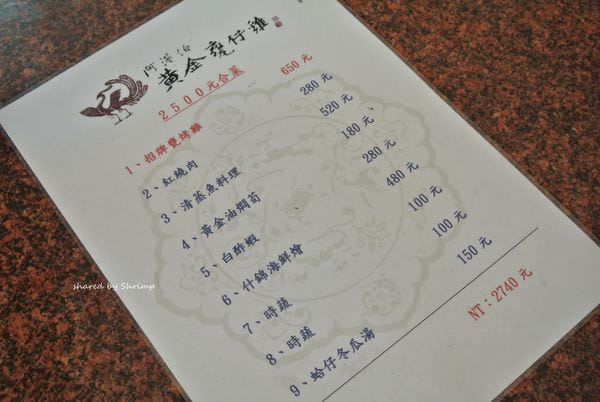 阿灣伯
黃金甕仔雞
2500元合菜
1、招牌甕烤雞 650元
2、紅燒肉 280元
3、清蒸魚料理 520元
4、黃金油燜筍 180元
5、白酢蝦 280元
6、什錦海鮮燴 480元
7、時蔬 100元
8、時蔬 100元
9、蛤仔冬瓜湯 150元
NT：2740元
shared by Shrimp